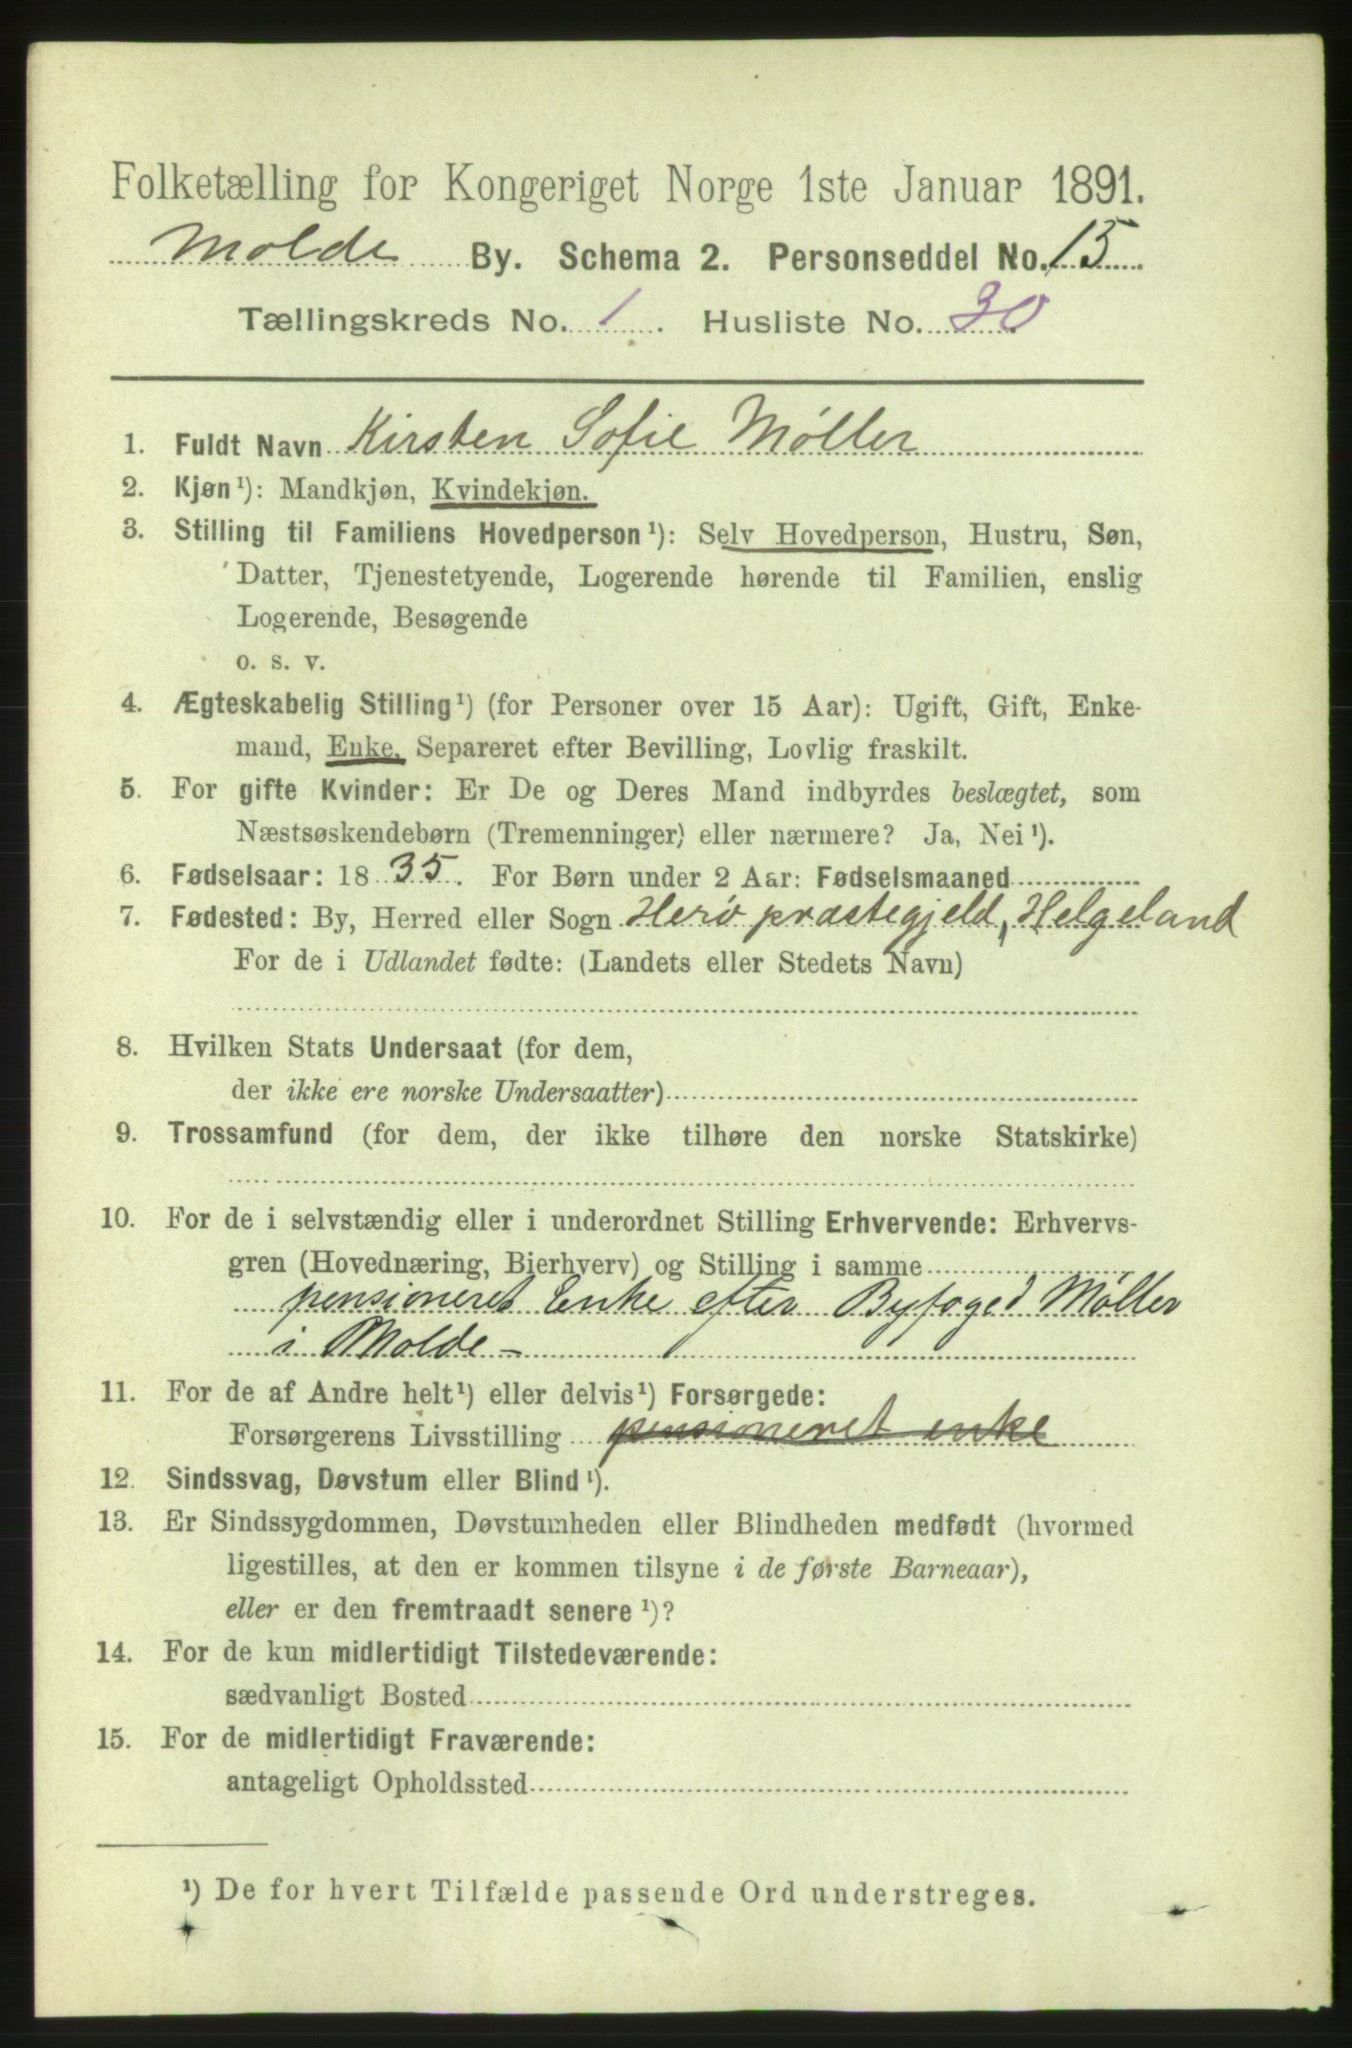 Folketælling for Kongeriget Norge 1ste Januar 1891.
Molde By. Schema 2. Personseddel No. 15
Tællingskreds No. 1. Husliste No. 30
1. Fuldt Navn Kirsten Sofie Møller
2. Kjøn¹): Mandkjøn, Kvindekjøn.
3. Stilling til Familiens Hovedperson¹): Selv Hovedperson, Hustru, Søn,
Datter, Tjenestetyende, Logerende hørende til Familien, enslig
Logerende, Besøgende
o. s. v.
4. Ægteskabelig Stilling¹) (for Personer over 15 Aar): Ugift, Gift, Enke-
mand, Enke, Separeret efter Bevilling, Lovlig fraskilt.
5. For gifte Kvinder: Er De og Deres Mand indbyrdes beslægtet, som
Næstsøskendebørn (Tremenninger) eller nærmere? Ja, Nei¹).
6. Fødselsaar: 1835. For Børn under 2 Aar: Fødselsmaaned
7. Fødested: By, Herred eller Sogn Herø præstegjeld, Helgeland
For de i Udlandet fødte: (Landets eller Stedets Navn)
8. Hvilken Stats Undersaat (for dem,
der ikke ere norske Undersaatter)
9. Trossamfund (for dem, der ikke tilhøre den norske Statskirke)
10. For de i selvstændig eller i underordnet Stilling Erhvervende: Erhvervs-
gren (Hovednæring, Bierhverv) og Stilling i samme
pensioneret Enke efter Byfoged Møller
i Molde -
11. For de af Andre helt¹) eller delvis¹) Forsørgede:
Forsørgerens Livsstilling pensioneret enke
12. Sindssvag, Døvstum eller Blind¹).
13. Er Sindssygdommen, Døvstumheden eller Blindheden medfødt (hvormed
ligestilles, at den er kommen tilsyne i de første Barneaar),
eller er den fremtraadt senere¹)?
14. For de kun midlertidigt Tilstedeværende:
sædvanligt Bosted
15. For de midlertidigt Fraværende:
antageligt Opholdssted
¹) De for hvert Tilfælde passende Ord understreges.